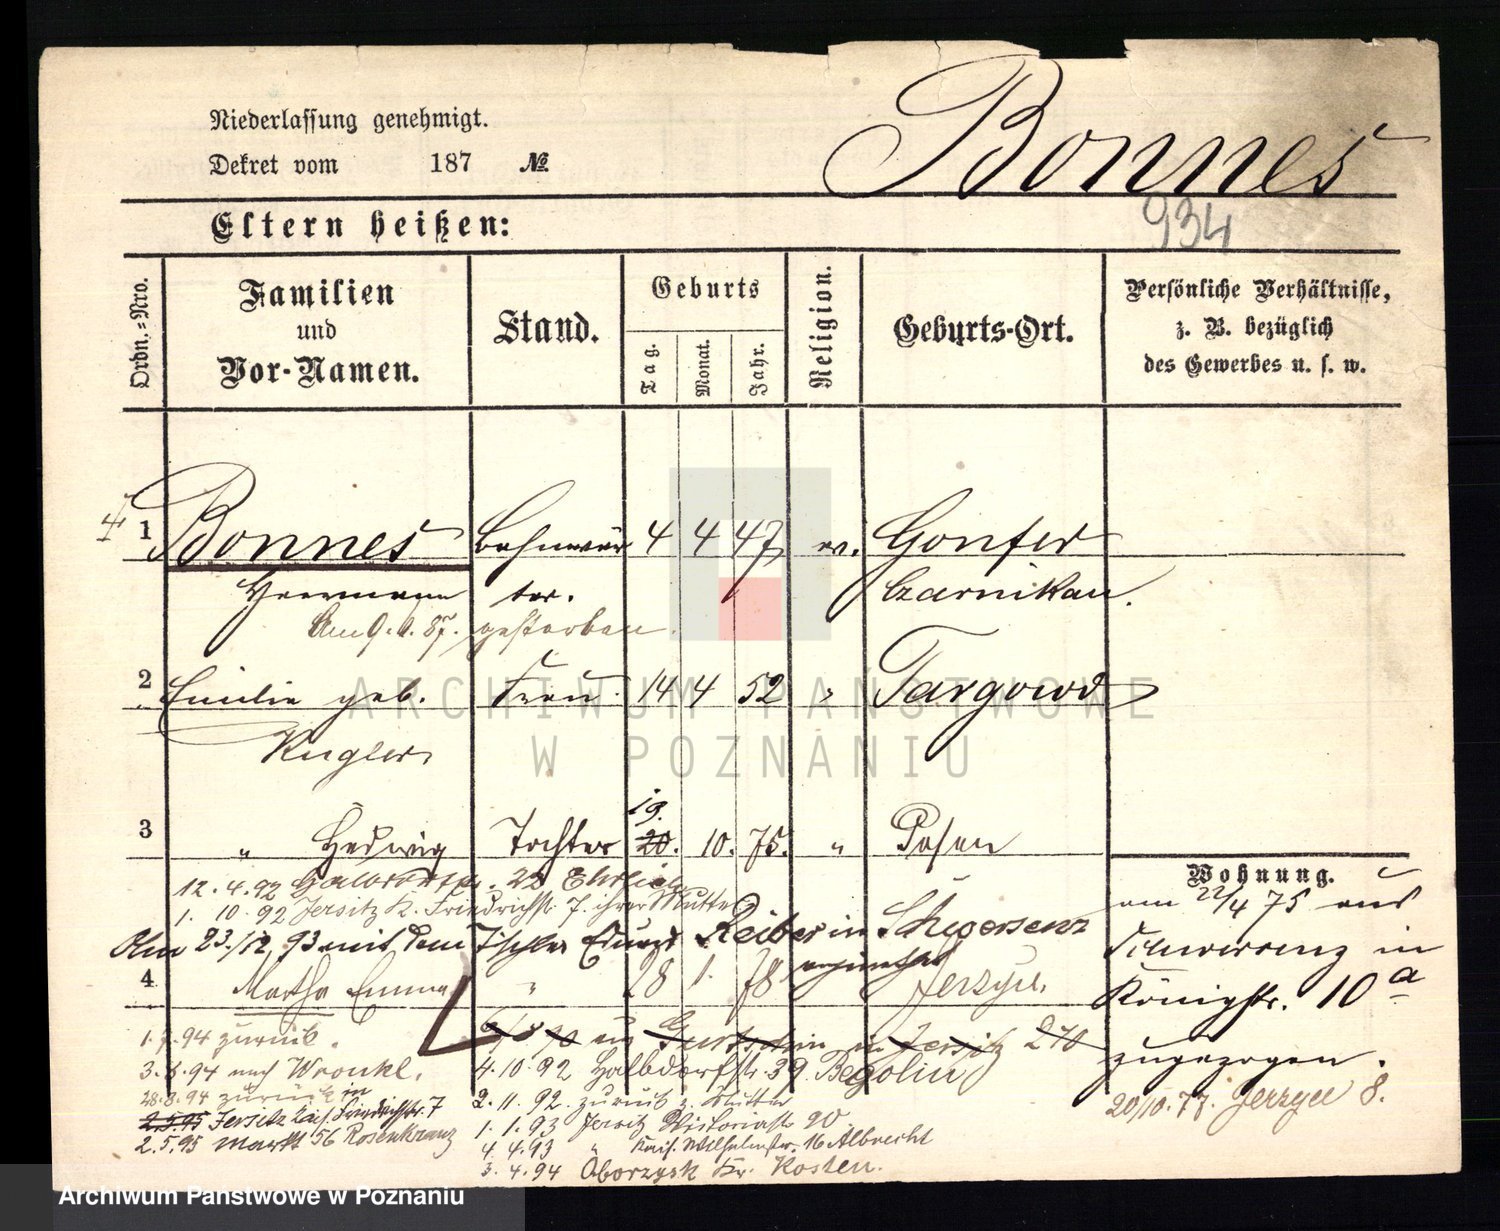 Niederlassung genehmigt.
Dekret vom 187 №
Bonnes
934
Eltern heißen:
Ordn.=Nro.
Familien
und
Vor-Namen.
Stand.
Geburts
Tag.
Monat.
Jahr.
Religion.
Geburts-Ort.
Persönliche Verhältnisse,
z. B. bezüglich
des Gewerbes u. s. w.
1 Bonnes Bahnwär 4 4 47 ev. Gonser
Herrmann ter. Czarnikau.
gestorben.
2 Emilie geb. Frau 14 4 52 " Targowo
Kugler
19.
3 " Hedwig Tochter 20. 10. 75. " Posen
12. 4. 92 22 Ehrlich
1. 10. 92 Jersitz K. Friedrichstr. 7. ihrer Mutter
Am 23./12. 93 mit dem Tischler Eduard Reiber in
4 Martha Emma " 28 1. 78 Jerzyce.
Wohnung.
am 22/4 75 aus
Schwersenz in
Königstr. 10a
zugezogen.
20/10. 77. Jerzyce 8.
1. 7. 94 zurück.
3. 8. 94 nach Wronke.
28. 8. 94 zurück in
2.5.95 Jersitz Kais. Friedrichstr. 7
2.5.95 Markt 56 Rosenkranz
in Jersitz 270
4. 10. 92 Halbdorfstr. 39. Begolin
2. 11. 92. zurück z. Mutter
1. 1. 93 Jersitz Victoriastr. 20
4. 4. 93 " Kais. Wilhelmstr. 16 Albrecht
3. 4. 94 Oborzysk Kr. Kosten.
ARCHIWUM PAŃSTWOWE
W POZNANIU
Archiwum Państwowe w Poznaniu